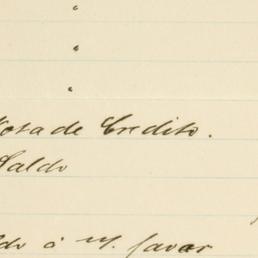 "
"
"
Nota de Credito.
Saldo
do á M. favor